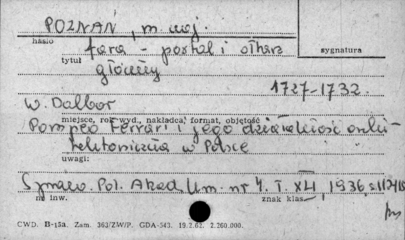 POZNAŃ, m. woj.
hasło
fara - portal i ołtarz
sygnatura
tytuł
główny
1727-1732.
W. Dalbor
miejsce, rok wyd., nakładca, format, objętość
Pompeo Ferrari i jego działalność archi-
tektoniczna w Polsce
uwagi:
Sprawo. Pol. Akad. Um. nr 4. T. XLI, 1936,
nr inw.
znak klas.
CWD. B-15a. Zam. 363/ZW/P. GDA-543. 19.2.62. 2.260.000.